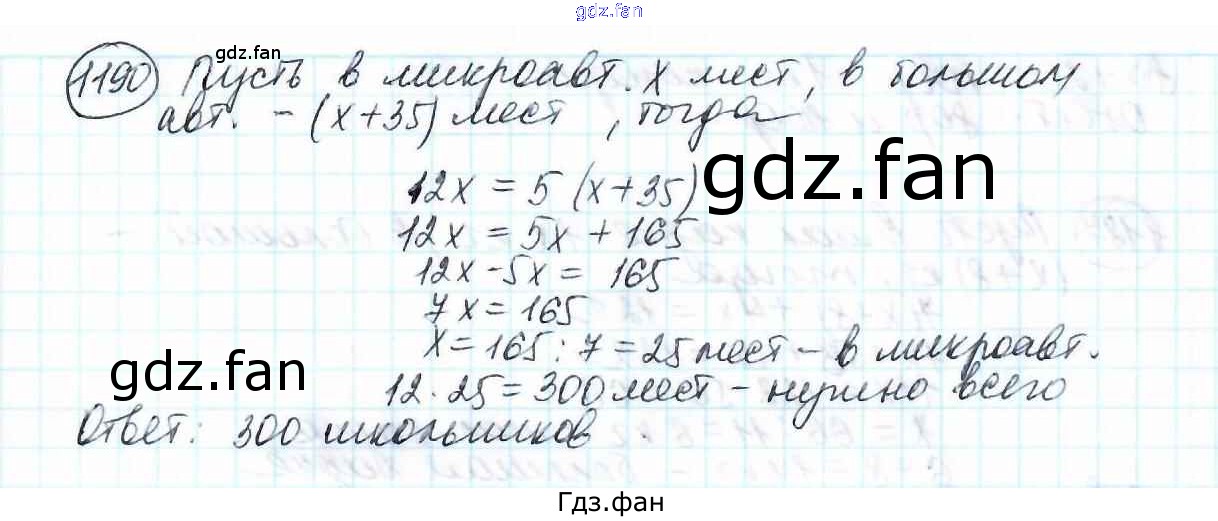 gdz.fan
gdz.fan
1190 Пусть в микроавт. x мест, в большом
авт. - (x+35) мест, тогда
12x = 5 (x+35)
gdz.fan
12x = 5x + 165
12x - 5x = 165
7x = 165
x = 165 : 7 = 25 мест - в микроавт.
gdz.fan
12 · 25 = 300 мест - нужно всего
Ответ: 300 школьников
Гдз.фан